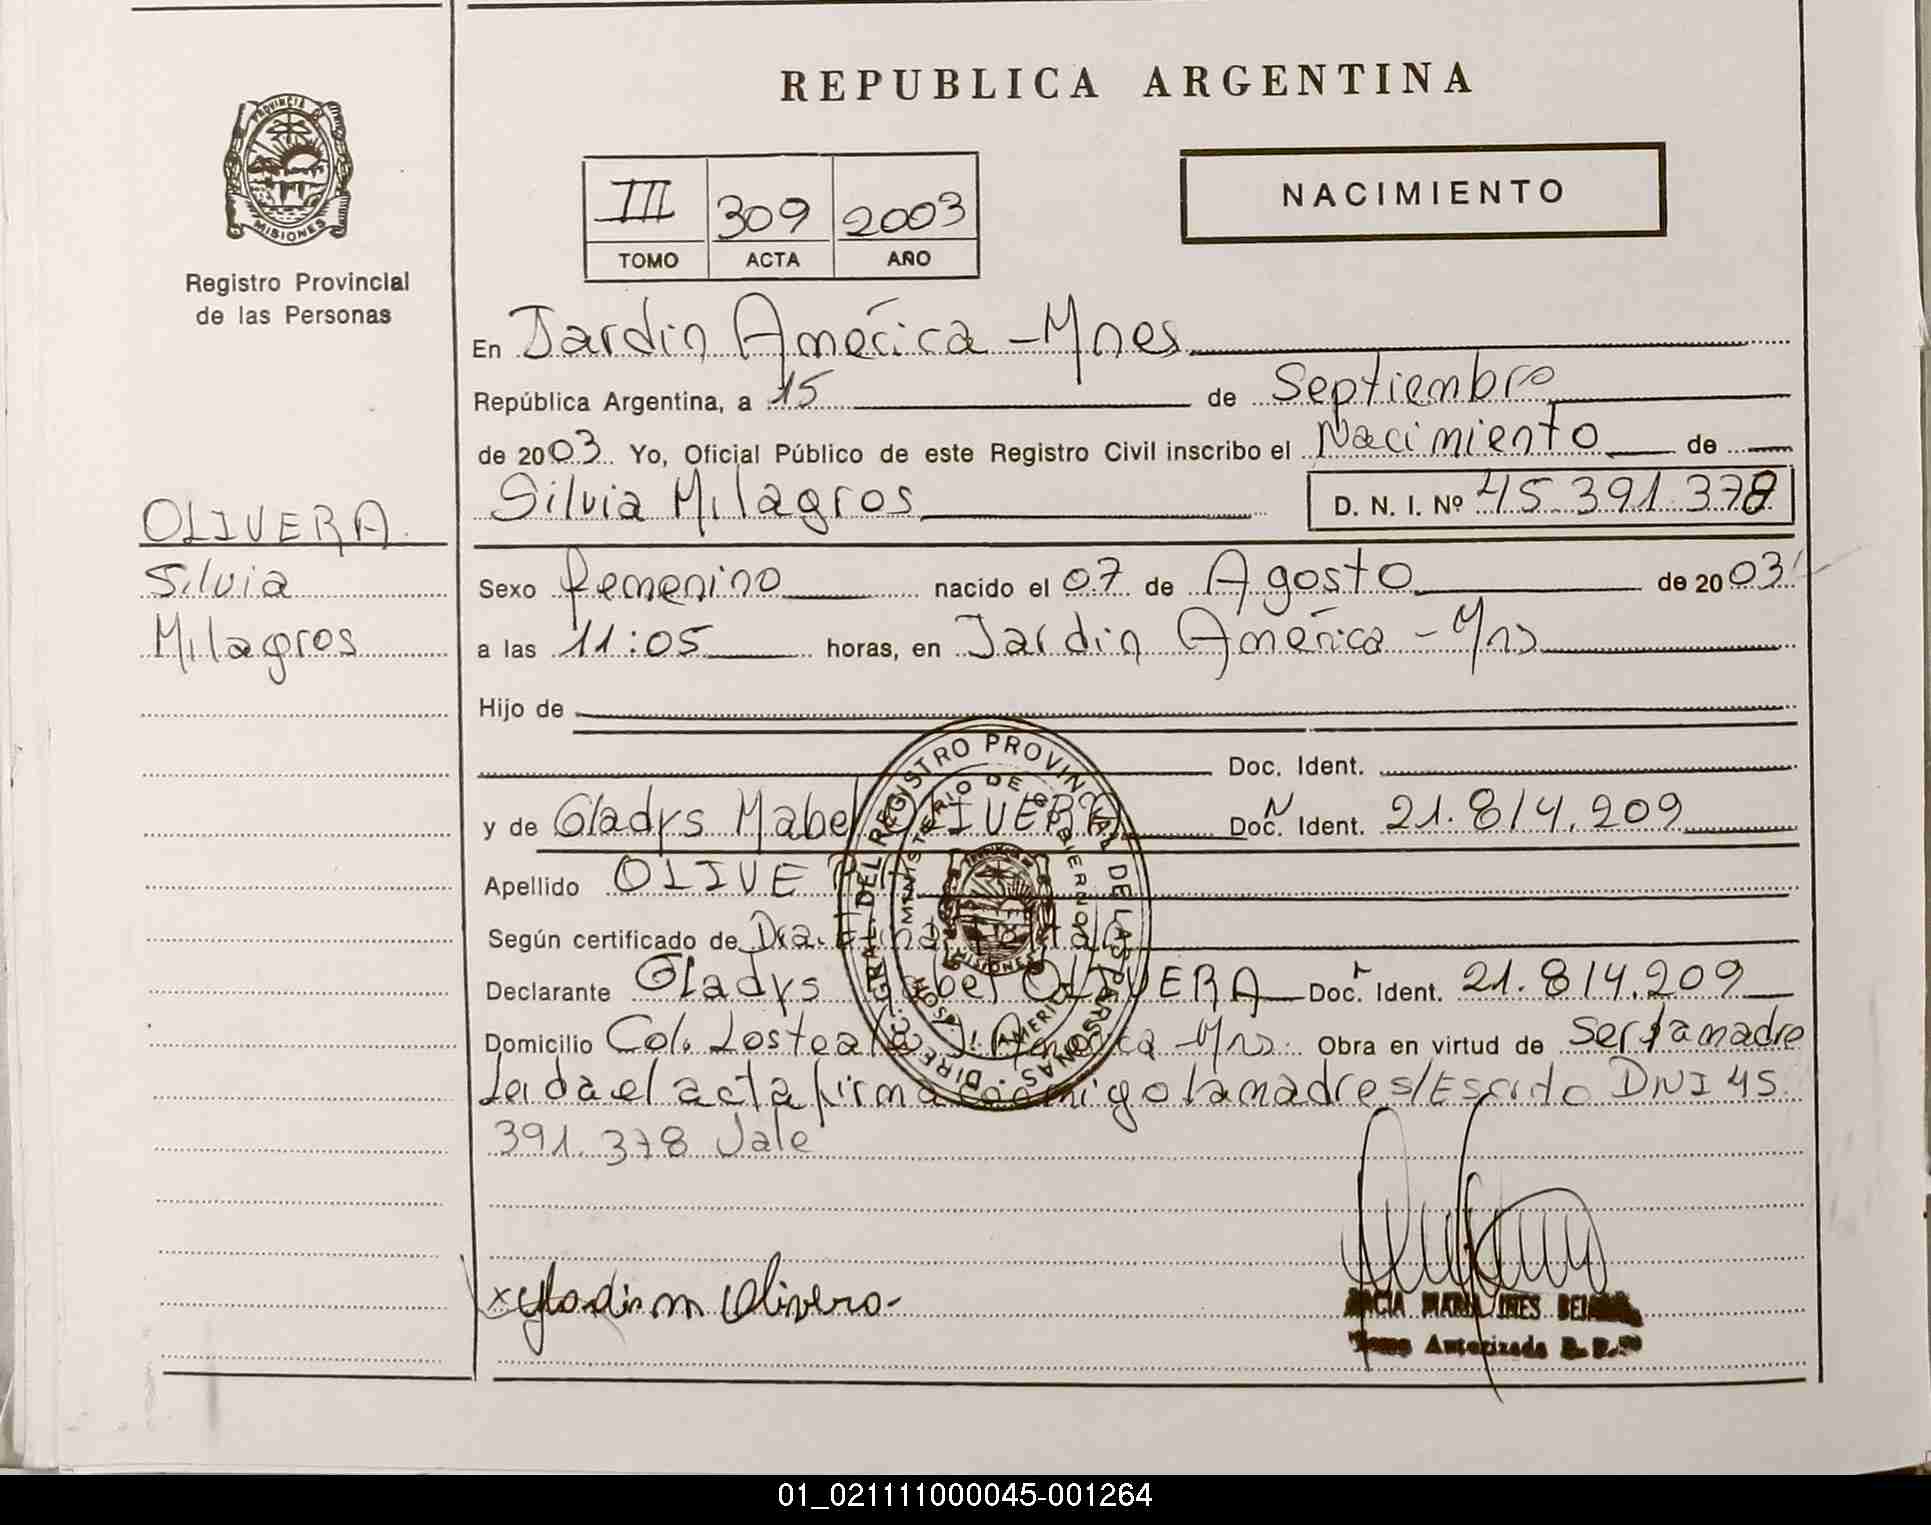 REPUBLICA ARGENTINA
PROVINCIA DE
MISIONES
Registro Provincial
de las Personas
III 309 2003
TOMO ACTA AÑO
NACIMIENTO
En Jardin América - Mnes
República Argentina, a 15 de Septiembre
de 2003. Yo, Oficial Público de este Registro Civil inscribo el Nacimiento de
Silvia Milagros D. N. I. Nº 45.391.378
OLIVERA
Silvia
Milagros
Sexo femenino nacido el 07 de Agosto de 2003
a las 11:05 horas, en Jardin América - Mns
Hijo de
Doc. Ident.
y de Gladys Mabel OLIVERA Doc. N Ident. 21.814.209
Apellido OLIVERA
Según certificado de Dra.
Declarante Gladys Mabel OLIVERA Doc. Ident. 21.814.209
Domicilio Col. Los teales J. América - Mns. Obra en virtud de ser la madre
Leida el acta firma conmigo la madre s/Escrito DNI 45
391.378 Vale
DIREC. GRAL. DEL REGISTRO PROVINCIAL DE LAS PERSONAS
MINISTERIO DE GOBIERNO
AMERICA
MISIONES
x Gladis m Olivera
MARIA INES
Autorizada
01_021111000045-001264